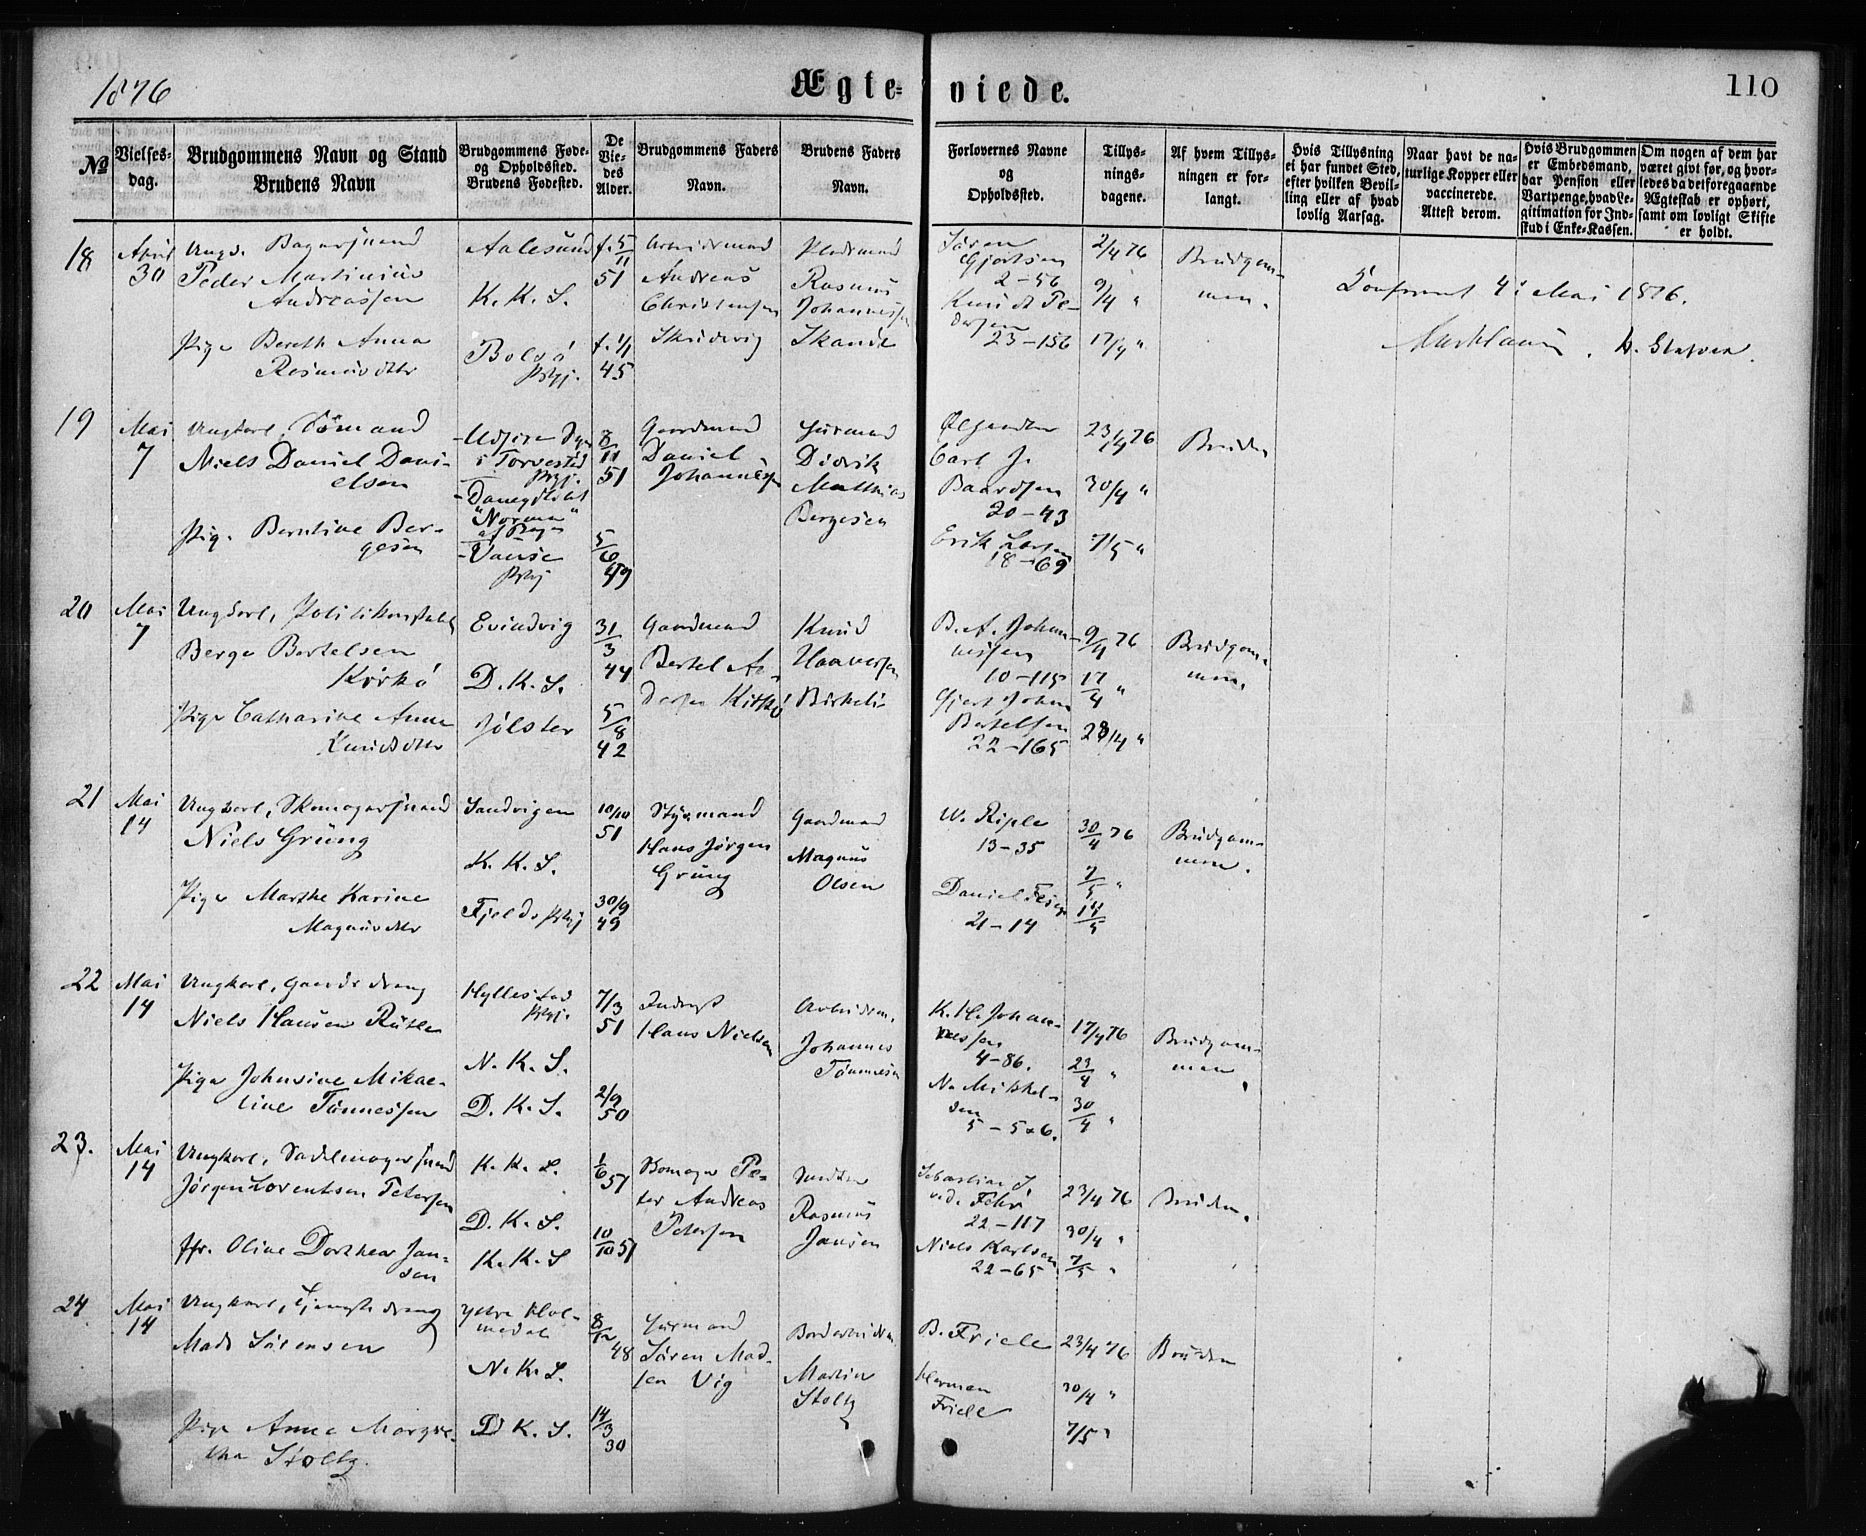 1876
Ægte- viede.
110
№
Vielses-
dag.
Brudgommens Navn og Stand
Brudens Navn
Brudgommens Føde-
og Opholdssted.
Brudens Fødested.
De
Vie-
des
Alder.
Brudgommens Faders
Navn.
Brudens Faders
Navn.
Forlovernes Navne
og
Opholdssted.
Tillys-
nings-
dagene.
Af hvem Tillys-
ningen er for-
langt.
Hvis Tillysning
ei har fundet Sted,
efter hvilken Bevil-
ling eller af hvad
lovlig Aarsag.
Naar havt de na-
turlige Kopper eller
vaccinerede.
Attest derom.
Hvis Brudgommen
er Embedsmand,
har Pension eller
Vartpenge, hvad Le-
gitimation for Ind-
skud i Enke-Kassen.
Om nogen af dem har
været givt før, og hvor-
ledes da det foregaaende
Ægteskab er ophørt,
samt om lovligt Skifte
er holdt.
18
April
30
Ungk. Bagersvend
Peder Martinius
Andreassen
Pige Bereth Anna
Rasmusdtr
Aalesund
K. K. S.
Bolsø
Prgj.
f. 5/11
51
f. 1/1
45
Arbeidsmand
Andreas
Christensen
Skridevig
Pladsmand
Rasmus
Johannessen
Skande
Søren
Gjertsen
2-56
Knudt Pe-
dersen
23-156
2/4 76
9/4 "
17/4 "
Brudgom-
men.
Confirmert 4de Mai 1876.
19
Mai
7
Ungkarl, Sømand
Niels Daniel Dani-
elsen
Pig. Berntine Ber-
gesen
i Torvestad
Prgj.
"Norma"
af Bergen
- Vanse
Prgj
51
5/6
49
Gaardmand
Daniel
Johannesen
Huusmand
Didrik
Matthias
Bergesen
Carl J.
Baardsen
20-43
Erik Larsen
18-69
23/4 76
30/4 "
7/5 "
Bruden
20
Mai
7
Ungkarl, Politikonstabel
Berge Bertelsen
Kirkø
Pige Catharine Anne
Knudsdtr
Evindvig
D. K. S.
Jølster
31/3
44
5/8
42
Gaardmand
Bertel An-
dersen Kirkø
Knud
Haaversen
Birkeli
B. A. Johan-
nessen
10-115
Gjert Johan
Bertelsen
22-165
9/4 76
17/4 "
23/4 "
Brudgom-
men.
21
Mai
14
Ungkarl, Skomagersvend
Niels Grüng
Pige Marthe Karine
Magnusdtr
Sandvigen
K. K. S.
Fjelds Prgj
10/10
51
30/9
49
Styrmand
Hans Jørgen
Grüng
Gaardmand
Magnus
Olsen
W. Riple
13-35
Daniel
21-14
30/4 76
7/5 "
14/5
Brudgom-
men.
22
Mai
14
Ungkarl, Gaardsdreng
Niels Hansen
Pige Johnsine Mikae-
line Tønnessen
Hyllestad
Prgj.
N. K. S.
D. K. S.
7/3
51
2/9
50
Inderst
Hans Nielsen
Arbeidsm.
Johannes
Tønnesen
K. H. Johan-
nessen
4-86.
N. Mikkel-
sen
5-526.
17/4 76
23/4 "
30/4 "
Brudgom-
men.
23.
Mai
14
Ungkarl, Sadelmagersvend
Jørgen Lorentsen Petersen
Jfr. Oline Dorthea Jan-
sen
K. K. S.
D. K. S.
K. K. S
1/6 51
10/10 51
Pe-
ter Andreas
Petersen
Rasmus
Jansen
Sebastian J
22-117
Niels Karlsen
22-65
23/4 76
30/4 "
7/5 "
Bruden.
24
Mai
14
Ungkarl, Tjenestedreng
Mads Sørensen
Pige Anna Margre-
tha Stoltz.
Ytre Hol-
medal
N. K. S.
D K. S.
8/12
48
14/3
30
Huusmand
Søren Mad-
sen Vig
Martin
Stoltz
B. Friele
Herman
Friele
23/4 76
30/4 "
7/5 "
Bruden